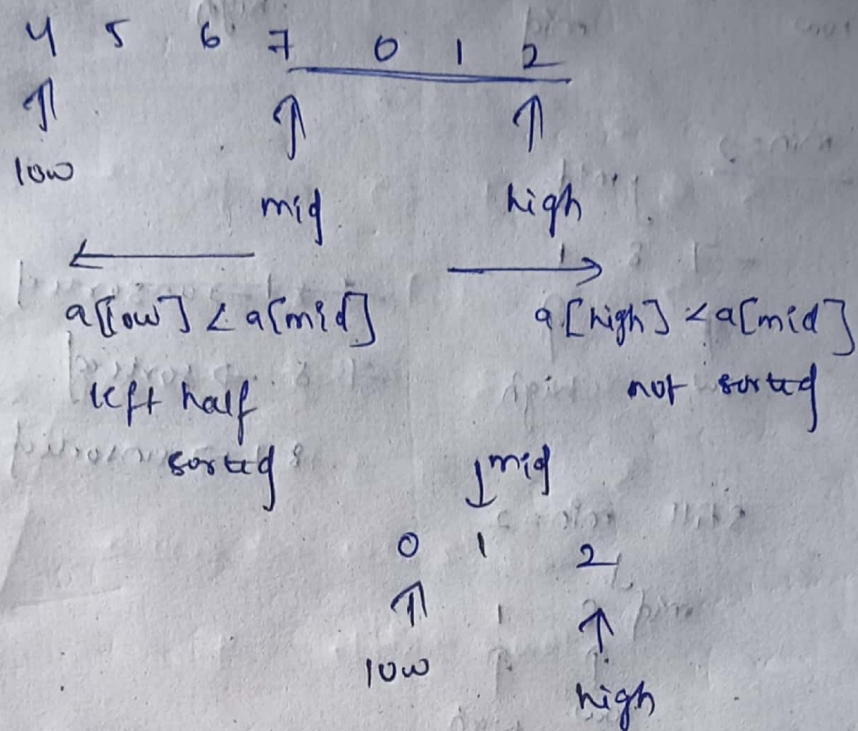 4 5 6 7 0 1 2
low
mid
high
a[low] < a[mid]
a[high] < a[mid]
left half
not sorted
sorted
mid
0 1 2
low
high